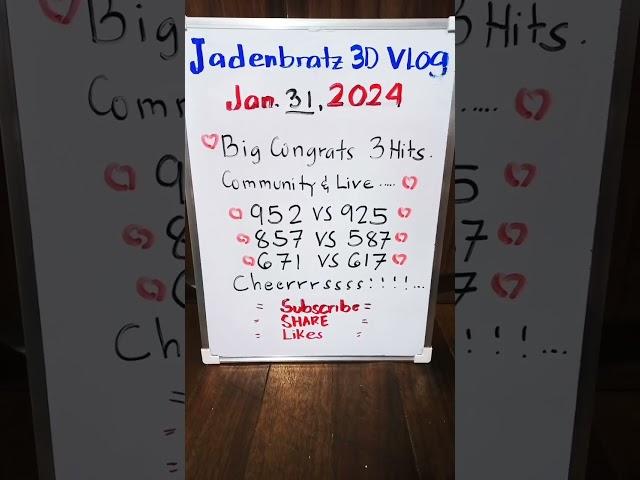 Jadenbratz 3D VLog
Jan. 31, 2024
Big Congrats 3 Hits.
Community & Live.....
952 VS 925
857 VS 587
671 VS 617
Cheerrrssss!!!!...
= Subscribe =
- SHARE =
= Likes =